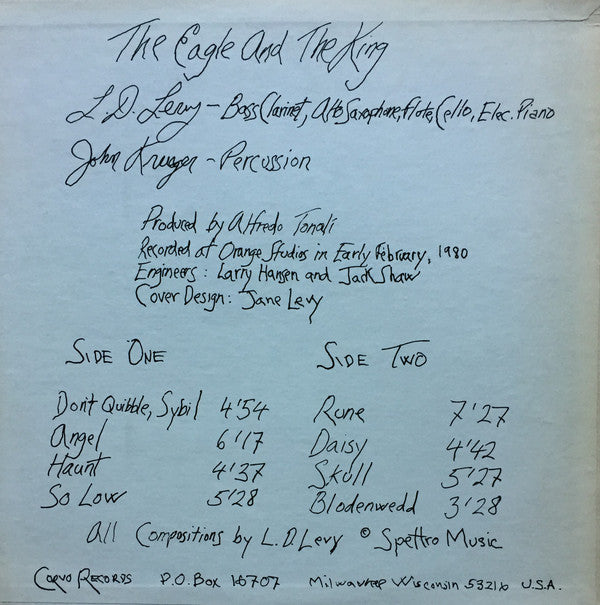 The Eagle And The King
L.D. Levy - Bass Clarinet, Alto Saxophone, Flute, Cello, Elec. Piano
John Krueger - Percussion
Produced by Alfredo Tonali
Recorded at Orange Studios in Early February, 1980
Engineers: Larry Hansen and Jack Shaw
Cover Design: Jane Levy
SIDE ONE
Don't Quibble, Sybil 4'54
Angel 6'17
Haunt 4'37
So Low 5'28
SIDE TWO
Rune 7'27
Daisy 4'42
Skull 5'27
Blodenwedd 3'28
All Compositions by L.D. Levy © Spettro Music
Corvo Records P.O. Box 16707 Milwaukee Wisconsin 53216 U.S.A.